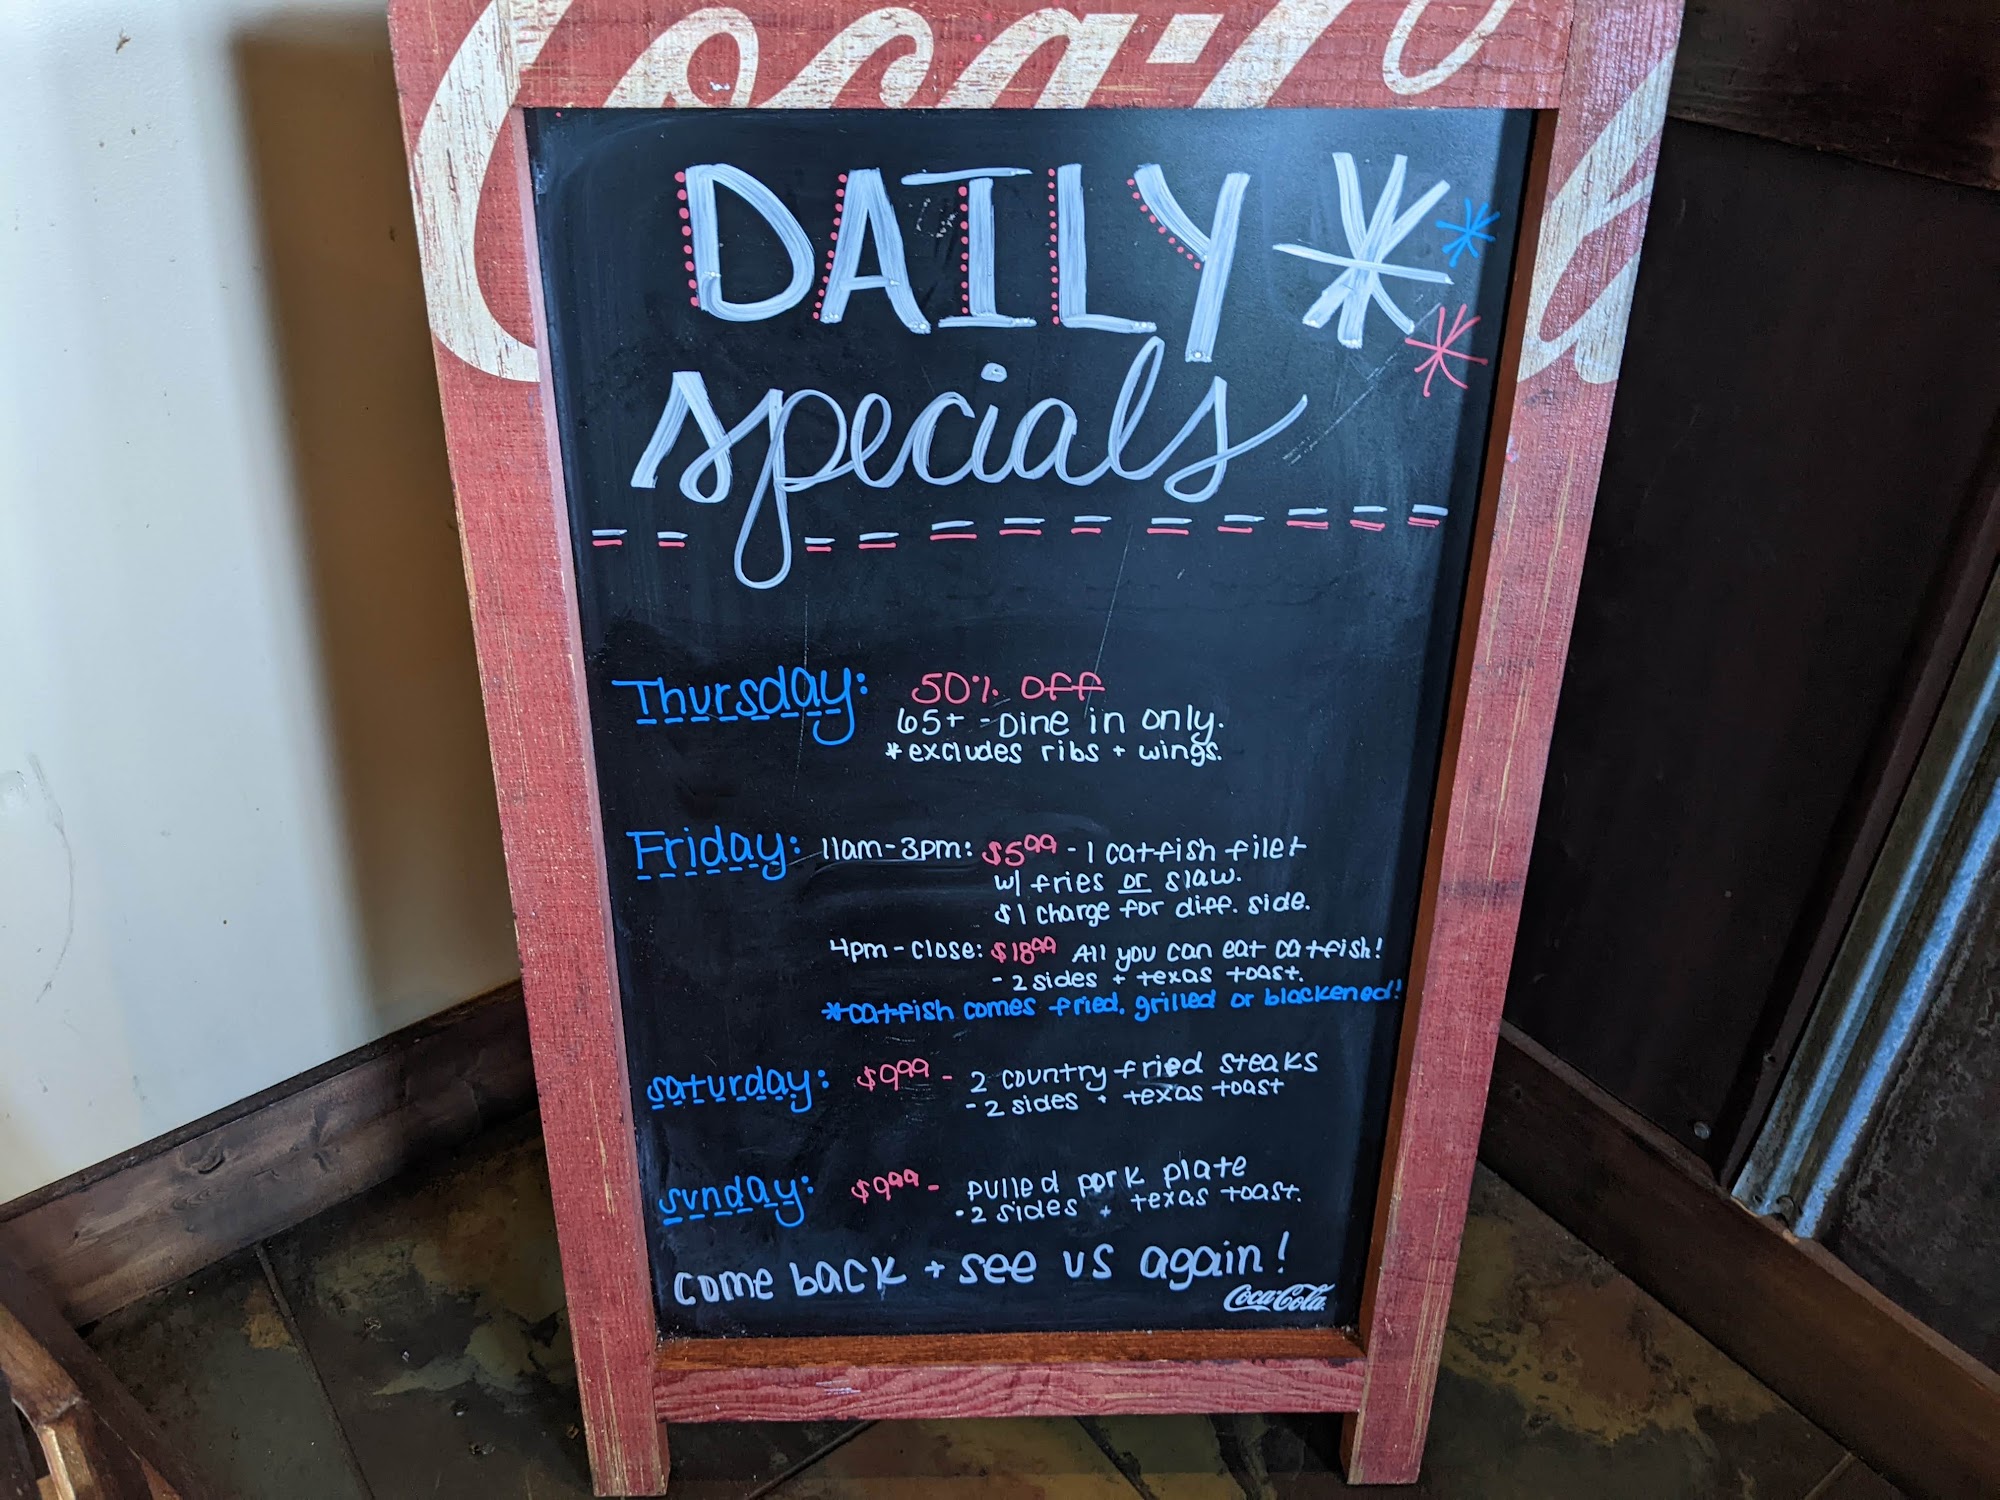 Coca-Cola
DAILY
specials
Thursday: 50% off
65+ - Dine in only.
*excludes ribs + wings.
Friday: 11am-3pm: $5.99 - 1 catfish filet
w/ fries or slaw.
$1 charge for diff. side.
4pm-close: $18.99 All you can eat catfish!
- 2 sides + texas toast.
*catfish comes fried, grilled or blackened!
saturday: $9.99 - 2 country fried steaks
- 2 sides + texas toast
sunday: $9.99 - pulled pork plate
• 2 sides + texas toast.
come back + see us again!
Coca-Cola